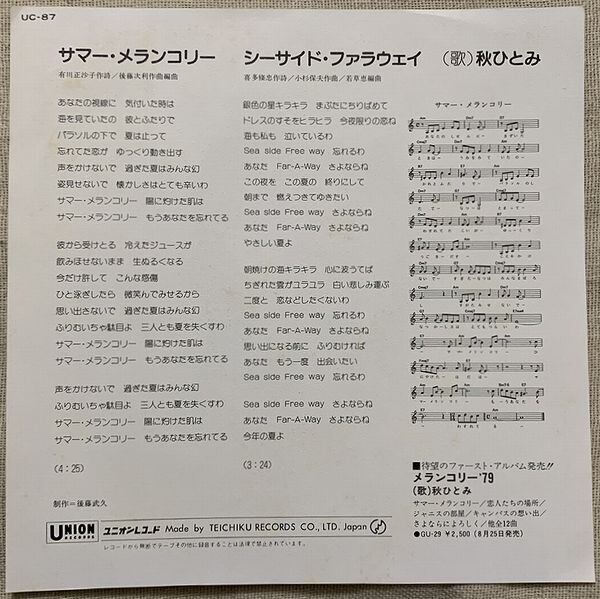 UC-87
サマー・メランコリー
有川正沙子作詩／後藤次利作曲編曲
あなたの視線に 気付いた時は
海を見ていたの 彼とふたりで
パラソルの下で 夏は止って
忘れてた恋が ゆっくり動き出す
声をかけないで 過ぎた夏はみんな幻
姿見せないで 懐かしさはとても辛いわ
サマー・メランコリー 陽に灼けた肌は
サマー・メランコリー もうあなたを忘れてる
彼から受けとる 冷えたジュースが
飲みほせないまま 生ぬるくなる
今だけ許して こんな感傷
ひと泳ぎしたら 微笑んでみせるから
思い出さないで 過ぎた夏はみんな幻
ふりむいちゃ駄目よ 三人とも夏を失くすわ
サマー・メランコリー 陽に灼けた肌は
サマー・メランコリー もうあなたを忘れてる
声をかけないで 過ぎた夏はみんな幻
ふりむいちゃ駄目よ 三人とも夏を失くすわ
サマー・メランコリー 陽に灼けた肌は
サマー・メランコリー もうあなたを忘れてる
(4:25)
制作＝後藤武久
シーサイド・ファラウェイ
喜多條忠作詩／小杉保夫作曲／若草恵編曲
銀色の星キラキラ まぶたにちりばめて
ドレスのすそをヒラヒラ 今夜限りの恋ね
海も私も 泣いているわ
Sea side Free way 忘れるわ
あなた Far-A-Way さよならね
この夜を この夏の 終りにして
朝まで 燃えつきてゆきたい
Sea side Free way さよならね
あなた Far-A-Way 忘れるわ
Sea side Free way 忘れるわ
あなた Far-A-Way さよならね
やさしい夏よ
朝焼けの海キラキラ 心に波うてば
ちぎれた雲がユラユラ 白い悲しみ運ぶ
二度と 恋などしたくないわ
Sea side Free way 忘れるわ
あなた Far-A-Way さよならね
思い出になる前に ふりむければ
あなた もう一度 出会いたい
Sea side Free way 忘れるわ
Sea side Free way さよならね
あなた Far-A-Way さよならね
今年の夏よ
(3:24)
(歌)秋ひとみ
サマー・メランコリー
■待望のファースト・アルバム発売!!
メランコリー'79
(歌)秋ひとみ
サマー・メランコリー／恋人たちの場所／
ジャニスの部屋／キャンパスの想い出／
さよならによろしく／他全12曲
●GU-29 ¥2,500（8月25日発売）
UNION RECORDS ユニオンレコード Made by TEICHIKU RECORDS CO., LTD. Japan
レコードから無断でテープその他に録音することは法律で禁じられています。